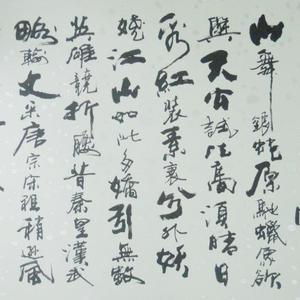 山舞銀蛇原馳蠟象欲
與天公試比高須晴日
看紅裝素裹分外妖
嬈江山如此多嬌引無數
英雄競折腰昔秦皇漢武
略輸文采唐宗宋祖稍遜風